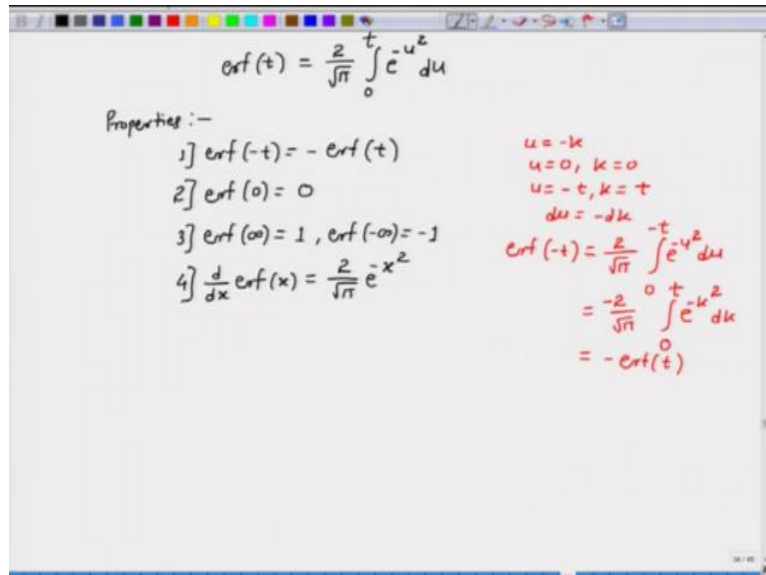 erf(t) = 2/√π ∫₀ᵗ e^{-u²} du
Properties :-
1] erf(-t) = - erf(t)
2] erf(0) = 0
3] erf(∞) = 1 , erf(-∞) = -1
4] d/dx erf(x) = 2/√π e^{-x²}
u = -k
u = 0, k = 0
u = -t, k = t
du = -dk
erf(-t) = 2/√π ∫₀^{-t} e^{-u²} du
= -2/√π ∫₀ᵗ e^{-k²} dk
= - erf(t)